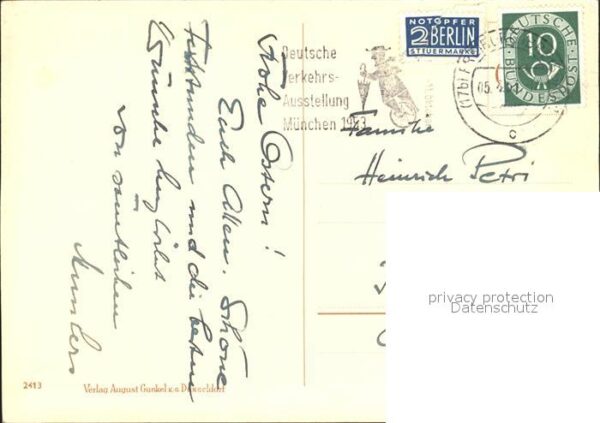 NOTOPFER
2 BERLIN
STEUERMARKE
DEUTSCHE
BUNDESPOST
10
Deutsche
Verkehrs-
Ausstellung
München 1953
(17b)
05.
c
Familie
Heinrich Petri
privacy protection
Datenschutz
Frohe Ostern!
Euch Allen. Schöne
Festtage und die besten
Wünsche
von sämtlichen
2413
Verlag August Gunkel Düsseldorf